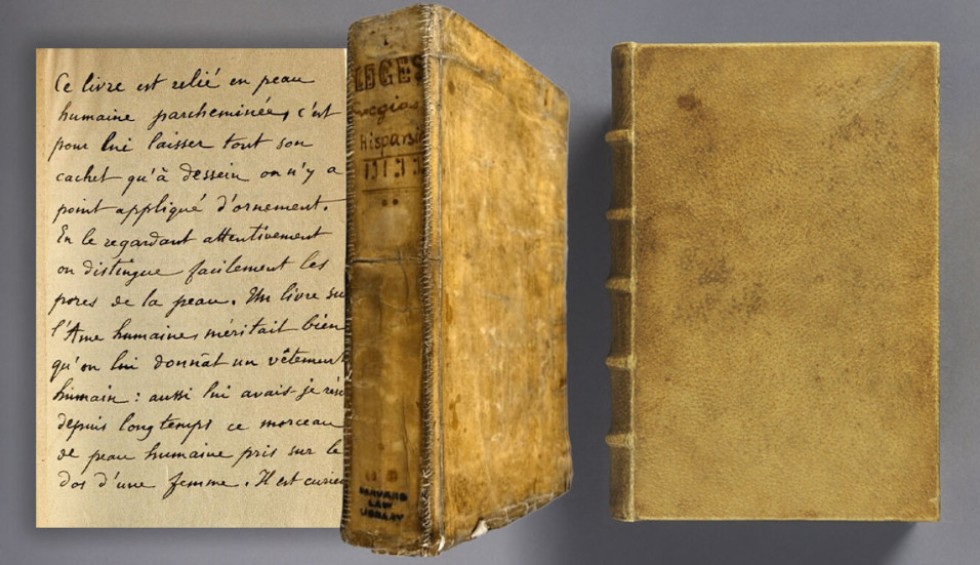 Ce livre est relié en peau
humaine parcheminée, c'est
pour lui laisser tout son
cachet qu'à dessein on n'y a
point appliqué d'ornement.
En le regardant attentivement
on distingue facilement les
pores de la peau. Un livre su
l'Ame humaine méritait bien
qu'on lui donnât un vêtement
humain : aussi lui avais-je rés
depuis longtemps ce morceau
de peau humaine pris sur le
dos d'une femme. Il est curieu
LOGES
hispani
HARVARD
LAW
LIBRARY